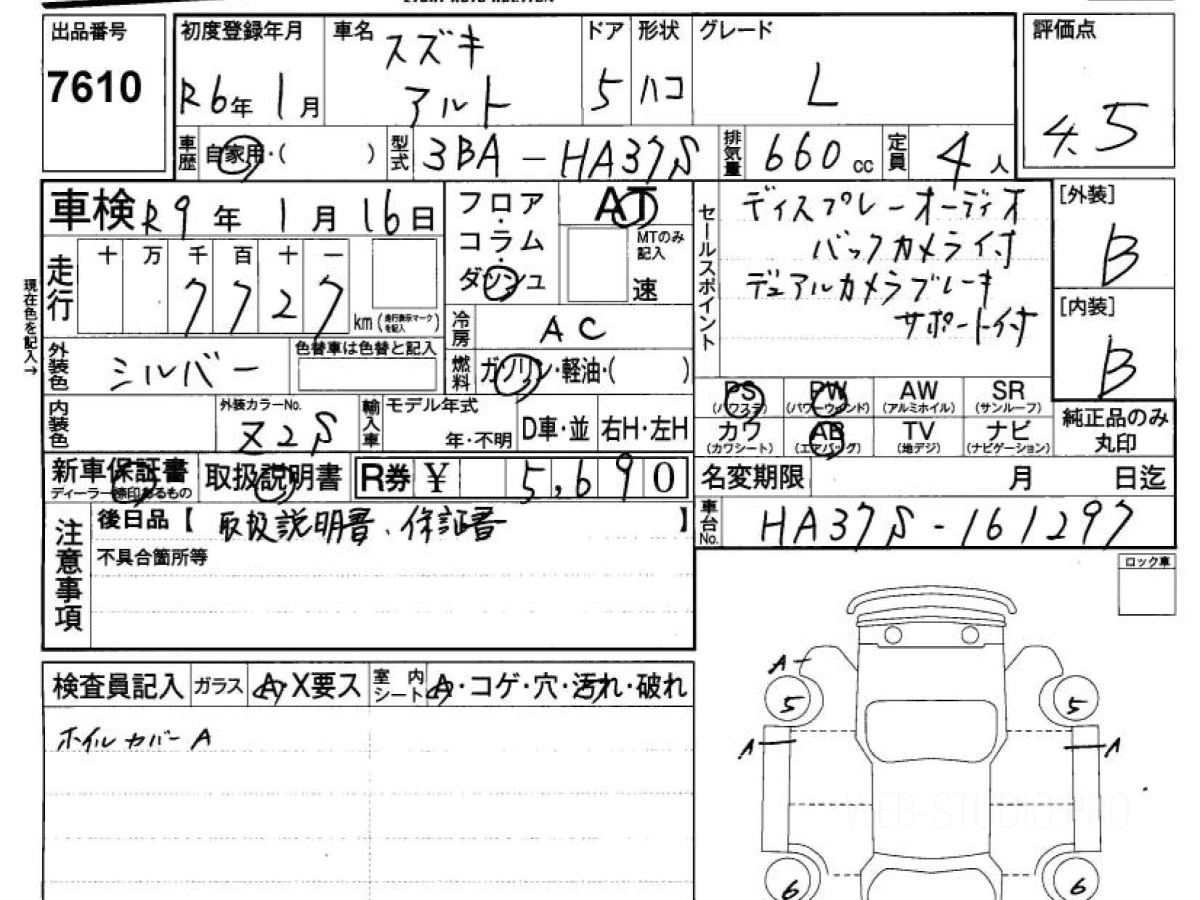 出品番号
7610
初度登録年月
R6年 1月
車名
スズキ
アルト
ドア
5
形状
ハコ
グレード
L
評価点
4.5
車歴
自家用・( )
型式
3BA-HA37S
排気量
660cc
定員
4人
車検 R9年 1月 16日
走行
十 万 千 百 十 一
7 7 2 7 km (走行表示マークを記入)
現在色を記入→
外装色
シルバー
色替車は色替と記入
内装色
外装カラーNo.
Z2S
輸入車
モデル年式
年・不明
D車・並
右H・左H
フロア・コラム・ダッシュ
AT
MTのみ記入
速
冷房
AC
燃料
ガソリン・軽油・( )
セールスポイント
ディスプレーオーディオ
バックカメラ付
デュアルカメラブレーキ
サポート付
[外装]
B
[内装]
B
PS
(パワステ)
PW
(パワーウィンド)
AW
(アルミホイル)
SR
(サンルーフ)
カワ
(カワシート)
AB
(エアバッグ)
TV
(地デジ)
ナビ
(ナビゲーション)
純正品のみ
丸印
新車保証書
ディーラー捺印あるもの
取扱説明書
R券 ¥ 5,690
名変期限 月 日迄
車台No.
HA37S-161297
注意事項
後日品【 取扱説明書、保証書 】
不具合箇所等
ロック車
検査員記入
ガラス
A・X要ス
室内シート
A・コゲ・穴・汚れ・破れ
ホイルカバーA
A
5
5
A
A
6
6
WEB-STUDIO.PRO